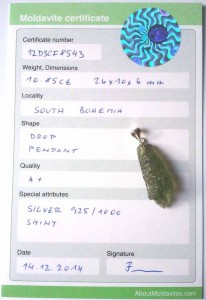 Moldavite certificate
Certificate number
12DSCE8543
Weight, Dimensions
10.85ct 26x10x6mm
Locality
SOUTH BOHEMIA
Shape
DROP
PENDANT
Quality
A+
Special attributes
SILVER 925/1000
SHINY
Date
Signature
14.12.2014
AboutMoldavites.com